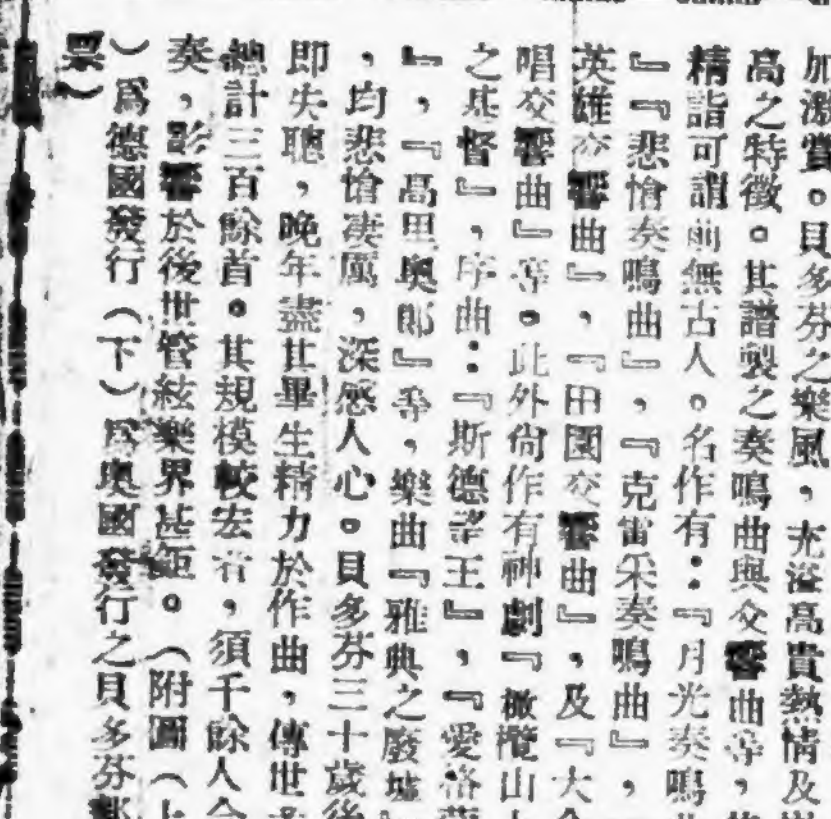 加激賞。貝多芬之樂風，充溢高貴熱情及
高之特徵。其譜製之奏鳴曲與交響曲等，
精詣可謂前無古人。名作有：『月光奏鳴
』『悲愴奏鳴曲』，『克雷采奏鳴曲』，
英雄交響曲』，『田園交響曲』，及『大合
唱交響曲』等。此外尙作有神劇『橄欖山上
之基督』，序曲：『斯德望王』，『愛格蒙
』，『高里奧郎』等，樂曲『雅典之廢墟』
，均悲愴凄厲，深感人心。貝多芬三十歲後
即失聰，晚年盡其畢生精力於作曲，傳世
總計三百餘首。其規模較宏者，須千餘人合
奏，影響於後世管絃樂界甚鉅。（附圖（上
）爲德國發行（下）爲奧國發行之貝多芬郵
票）